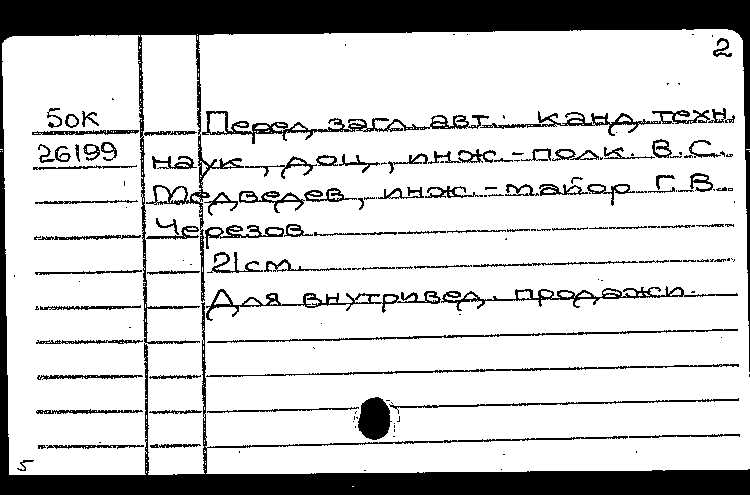 2
50К Перед загл. авт.: канд. техн.
26199 наук, доц., инж.-полк. В.С.
Медведев, инж.-майор Г.В.
Черезов.
21см.
Для внутривед. продажи.
5